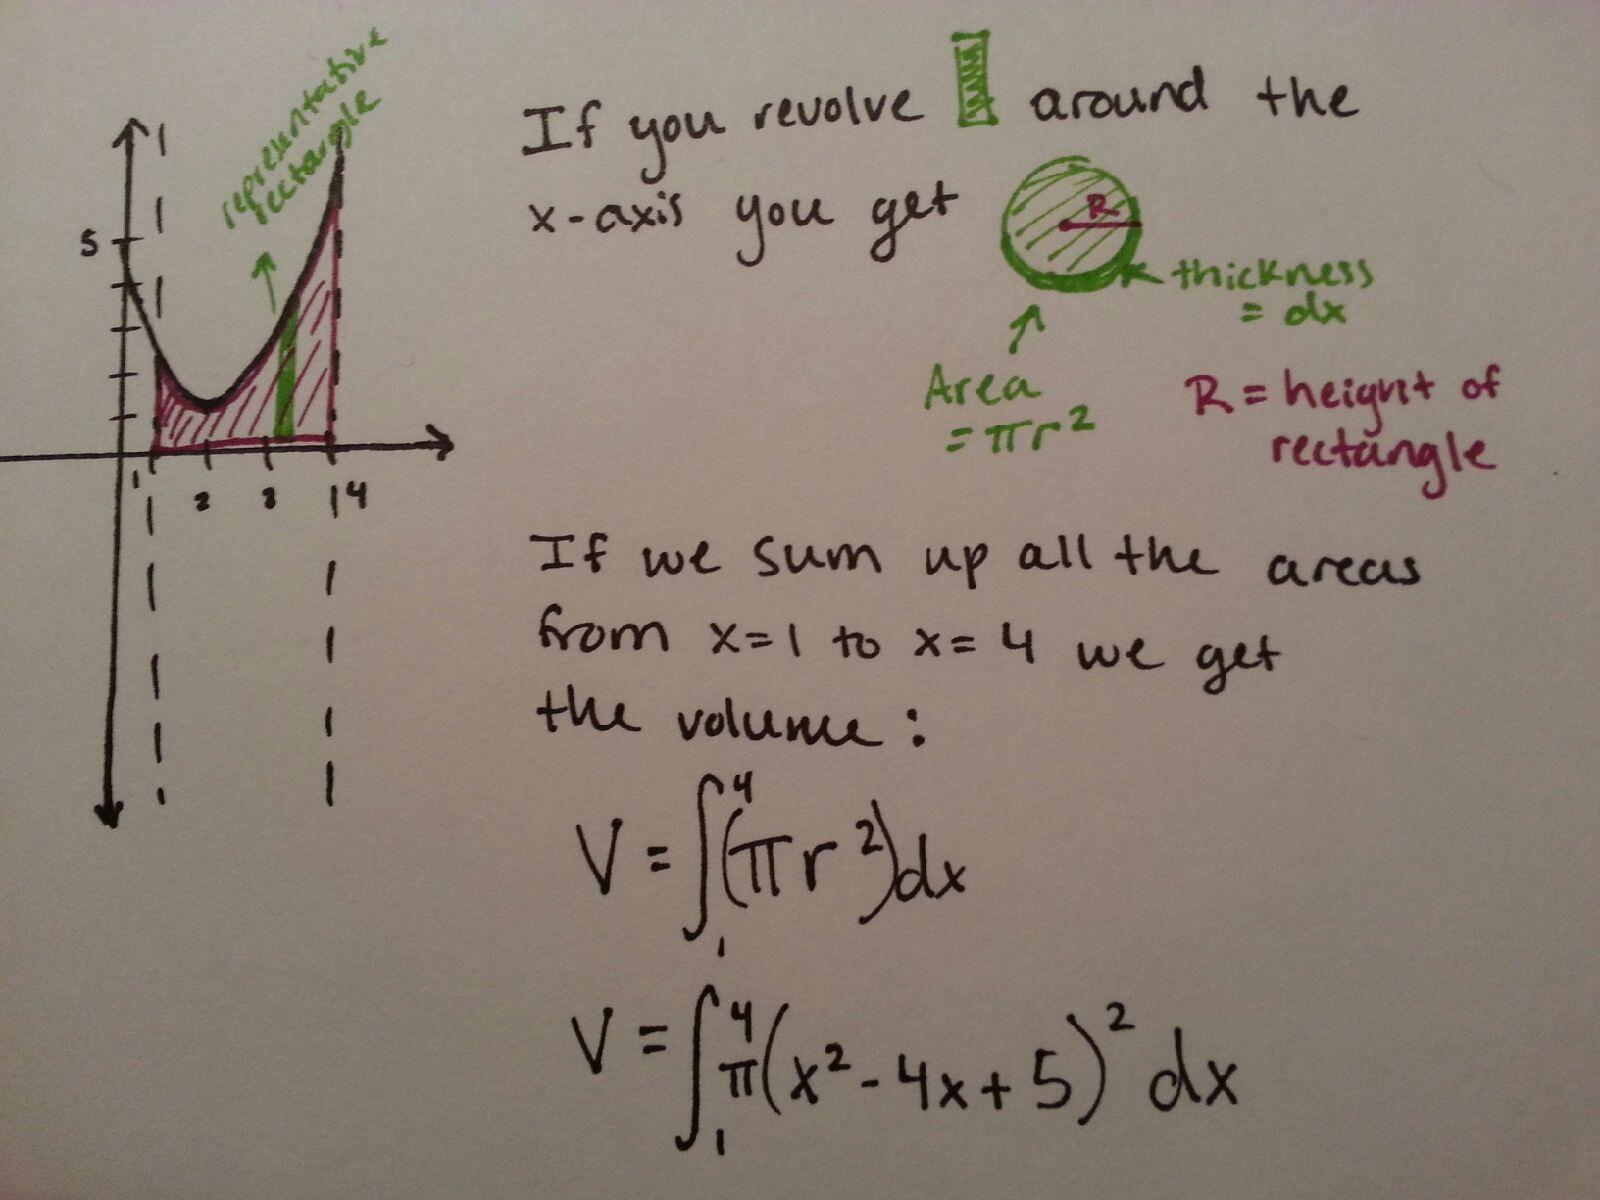 representative
rectangle
5
1
2
3
4
If you revolve around the
x-axis you get
R
thickness
= dx
Area
= πr²
R = height of
rectangle
If we sum up all the areas
from x=1 to x=4 we get
the volume:
V = ∫₁⁴ (πr²)dx
V = ∫₁⁴ π(x²-4x+5)² dx